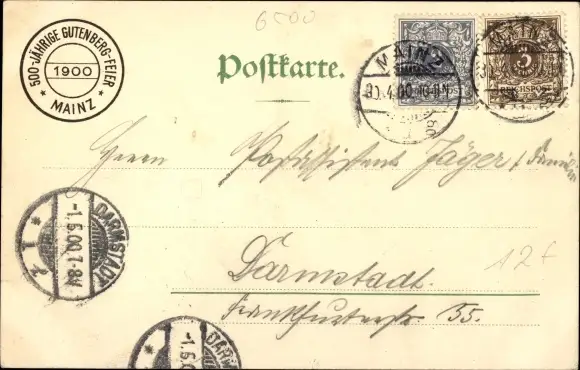 6500
500-JÄHRIGE GUTENBERG-FEIER
1900
* MAINZ *
Postkarte.
MAINZ
30.4.00.10-11 N
REICHSPOST
3
REICHSPOST
MAINZ
Herrn Postassistent Jäger & Familie
Darmstadt.
12 f
Frankfurterstr. 55.
DARMSTADT
-1.5.00.7-8V
* 1 *
DARMSTADT
-1.5.0